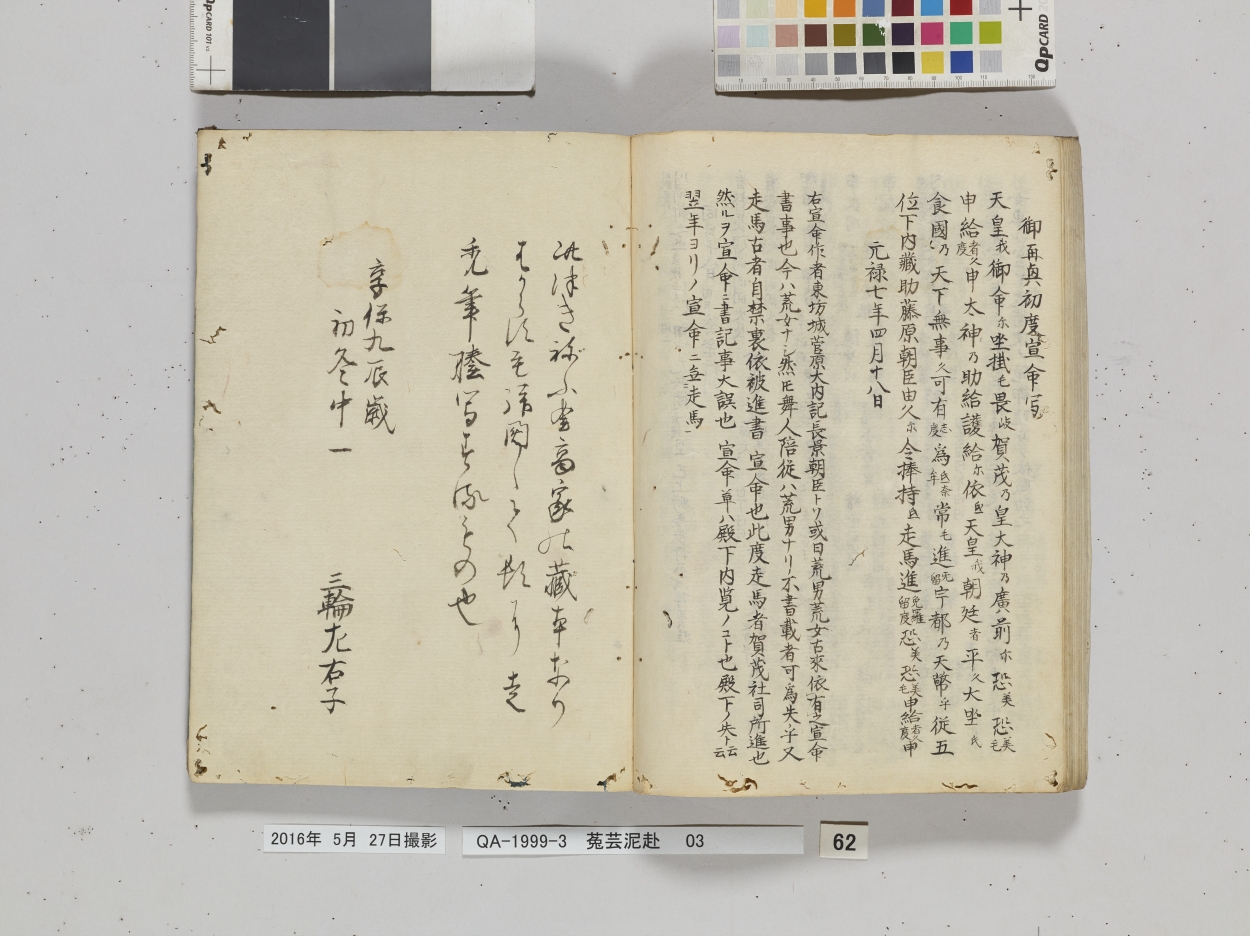 御再興初度宣命写
天皇我御命尓坐掛毛畏岐賀茂乃皇大神乃廣前尓恐美恐美毛
申給者久度申大神乃助給護給尓依弖天皇我朝廷者平久大坐氏
食國乃天下無事久可有志度為弖奈牟常毛進无留宇都乃天幣乎従五
位下内藏助藤原朝臣由久尓令捧持弖走馬進免羅留度恐美恐美毛申給者久度申
元禄七年四月十八日
右宣命作者東坊城菅原大内記長景朝臣トソ或曰荒男荒女古來依有之宣命
書事也今ハ荒女ナシ然ヒ舞人陪従ハ荒男ナリ不書載者可為失乎又
走馬古者自禁裏依被進書宣命也此度走馬者賀茂社司所進也
然ルヲ宣命ニ書記事大誤也 宣命草ハ殿下内覧ノコト也殿下ノ失ト云云
翌年ヨリノ宣命ニ無走馬
高家
藏本
禿筆謄写
もの也
享保九辰歳
初冬中一
三輪左右子
QPCARD 101 v3
QPCARD
2016年 5月 27日撮影
QA-1999-3 菟芸泥赴 03
62